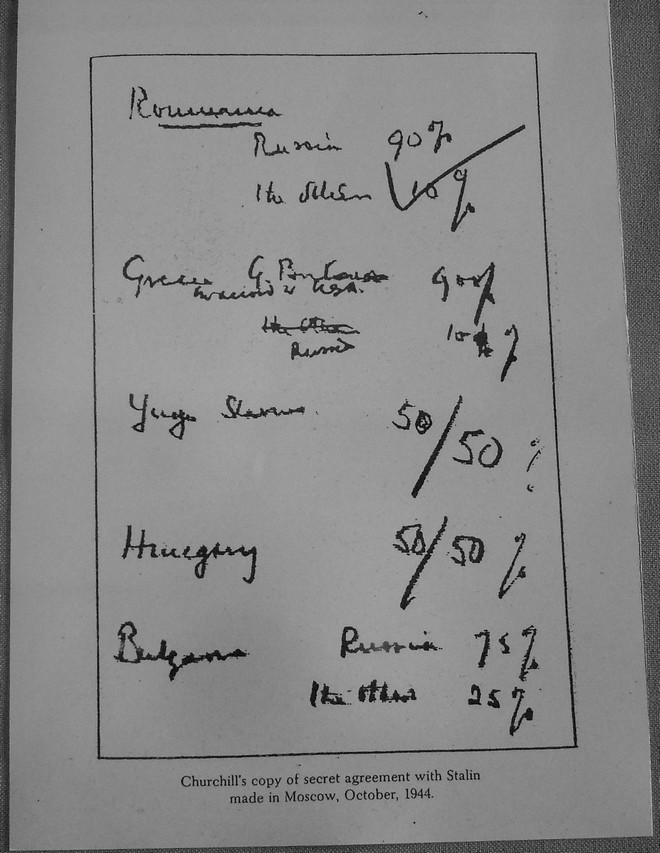 Roumania
Russia 90%
The others 10%
Greece G. Britain 90%
in accord with USA.
the others
Russia 10%
Yugo Slavia 50/50 %
Hungary 50/50 %
Bulgaria Russia 75%
The others 25%
Churchill's copy of secret agreement with Stalin
made in Moscow, October, 1944.